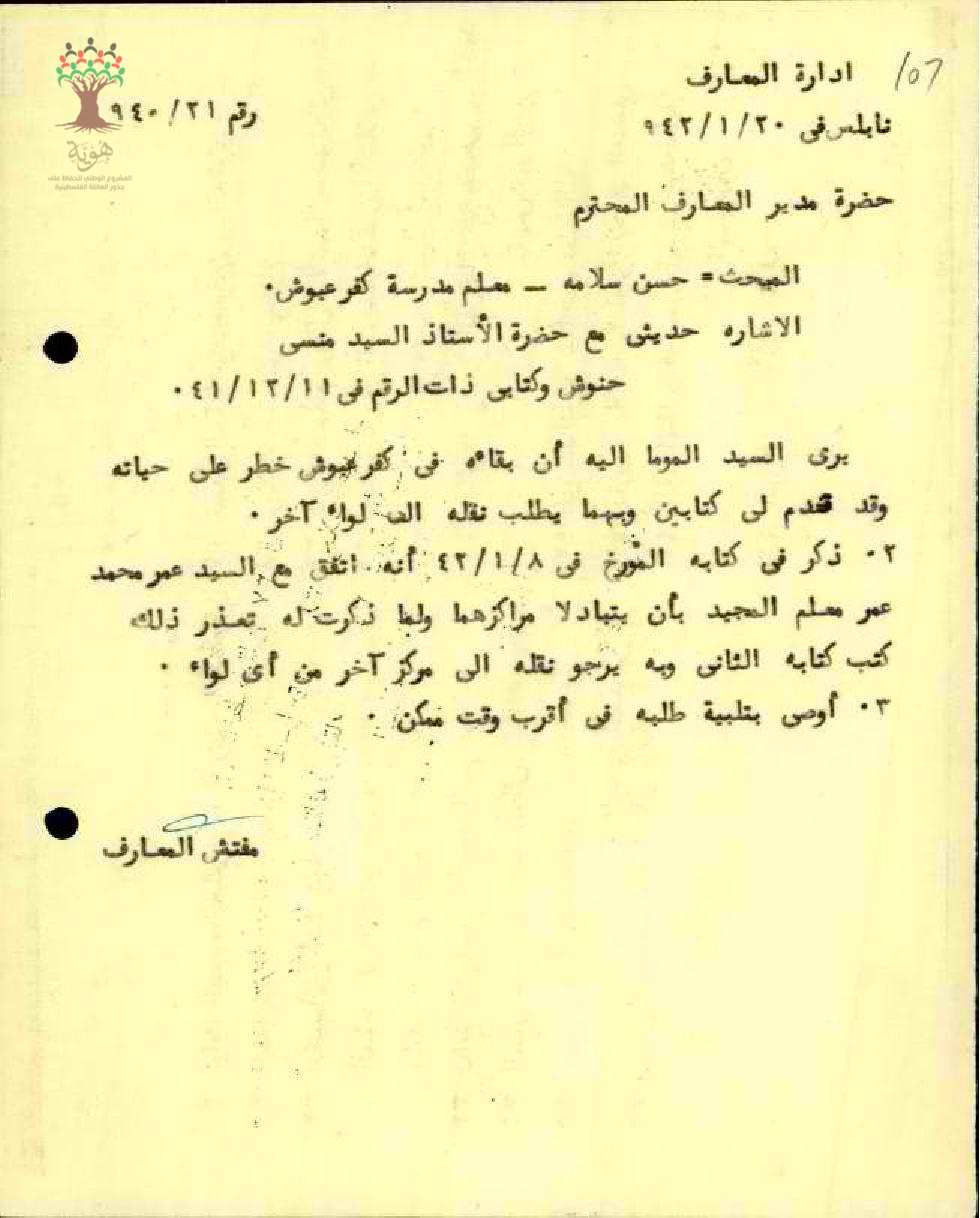 ادارة المعارف
107
نابلس فى ٩٤٢/١/٢٠
رقم ٩٤٠/٢١
هوية
المشروع الوطني للحفاظ على
جذور العائلة الفلسطينية
حضرة مدير المعارف المحترم
المبحث = حسن سلامه ــ معلم مدرسة كفر عبوش.
الاشاره حديثى مع حضرة الأستاذ السيد منسى
حنوش وكتابى ذات الرقم فى ٤١/١٢/١١ .
يرى السيد الموما اليه أن بقاءه فى كفر عبوش خطر على حياته
وقد قدم لى كتابين وبهما يطلب نقله الى لواء آخر .
٢. ذكر فى كتابه المؤرخ فى ٤٢/١/٨ أنه اتفق مع السيد عمر محمد
عمر معلم المجيد بأن يتبادلا مراكزهما ولما ذكرت له تعذر ذلك
كتب كتابه الثانى وبه يرجو نقله الى مركز آخر من أى لواء .
٣. أوصى بتلبية طلبه فى أقرب وقت ممكن .
مفتش المعارف